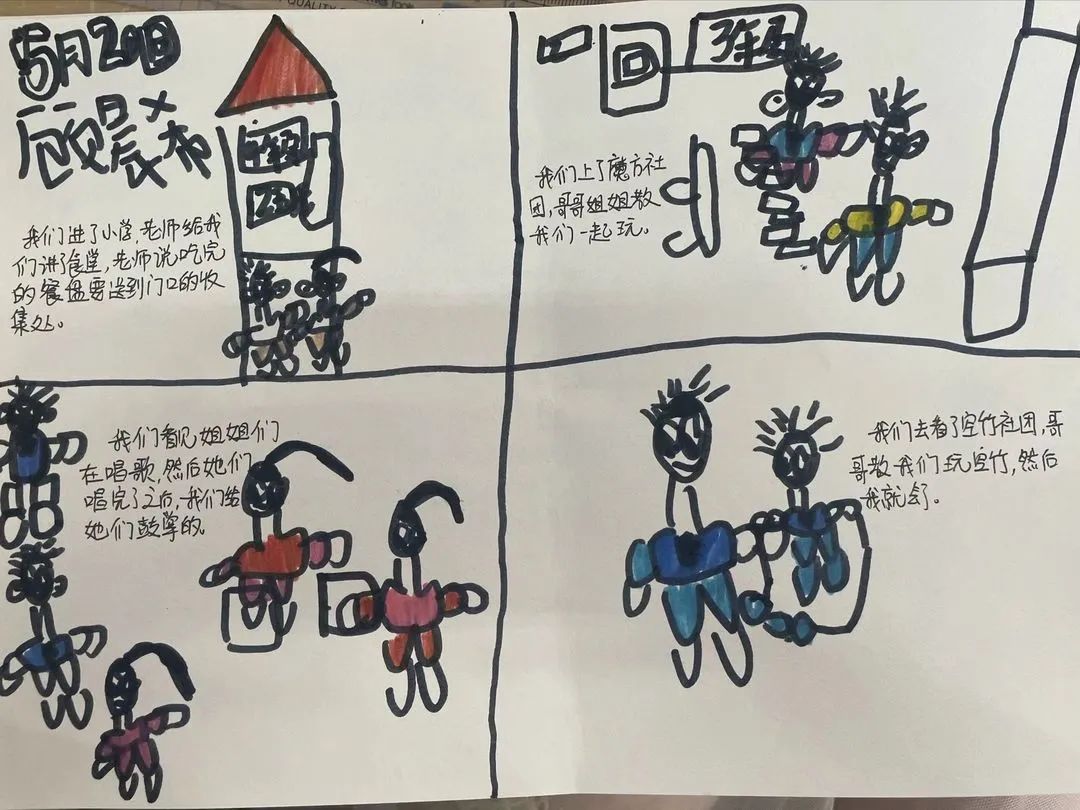 5月20日
顾晨希
我们进了小学,老师给我
们讲了食堂,老师说吃完
的餐盘要送到门口的收
集处。
回
3年5
我们上了魔方社
团,哥哥姐姐教
我们一起玩。
我们看见姐姐们
在唱歌,然后她们
唱完了之后,我们给
她们鼓掌的。
我们去看了空竹社团,哥
哥教我们玩空竹,然后
我就会了。